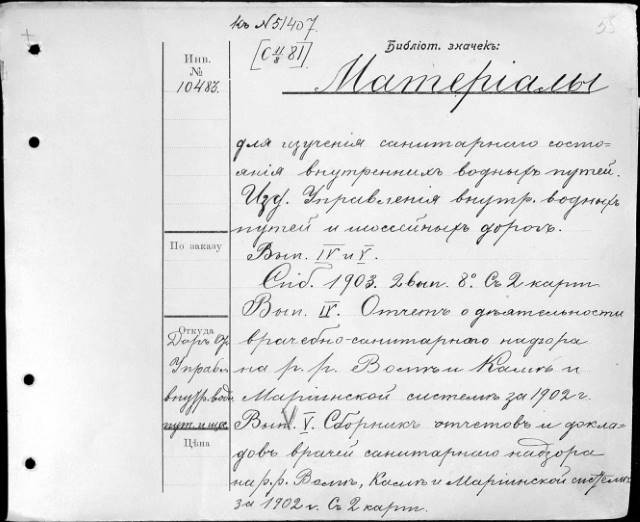 къ N 51407.
55
[C 4/8 81]
Библіот. значекъ:
Инв.
№
10483.
Матеріалы
для изученія санитарнаго состо-
янія внутреннихъ водныхъ путей.
Изд. Управленія внутр. водныхъ
путей и шоссейныхъ дорогъ.
По заказу
Вып. IV и V.
Спб. 1903. 2 вып. 8º. Съ 2 карт.
Вып. IV. Отчетъ о дѣятельности
врачебно-санитарнаго надзора
на р. р. Волгѣ и Камѣ и
Маріинской системѣ за 1902 г.
Вып. V. Сборникъ отчетовъ и докла-
довъ врачей санитарнаго надзора
на р. р. Волгѣ, Камѣ и Маріинской системѣ
за 1902 г. Съ 2 карт.
Откуда
Даръ
Управл.
внутр. водн.
пут. и шос.
Цѣна